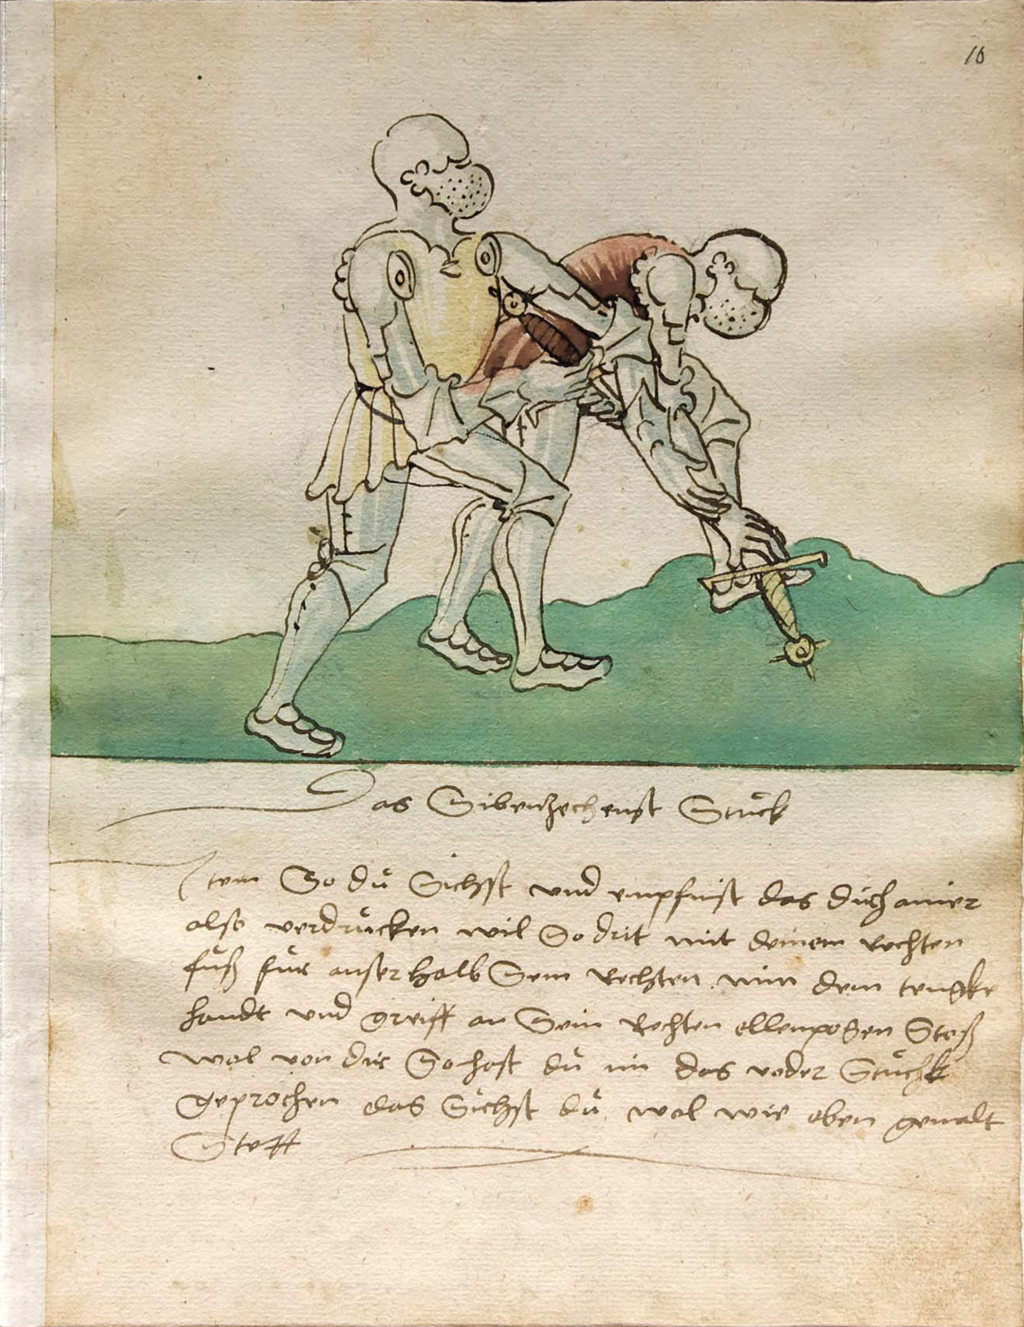 16
Das Sibenzechenst Stuck
Item So du Sichst und empfinst das dich ainer
also verdrucken wil So drit mit deinem rechten
fuß fur ausserhalb Sein rechten nim dein tengke
handt und greiff an Sein Rechten ellenpogen Stoß
wol von dir So hast du im das oder Stuckh
geprochen das Sichst du wol wie oben gemalt
Stett